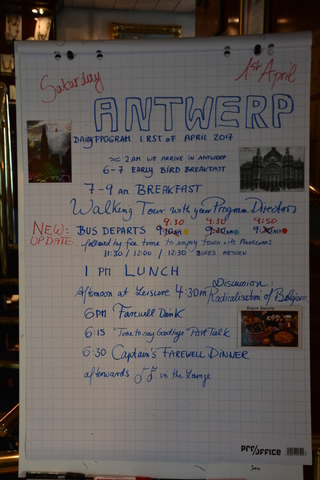 Saturday
1st April
ANTWERP
Daily PROGRAM 1RST of APRIL 2017
≈ 2 AM WE ARRIVE IN ANTWERP
6-7 EARLY BIRD BREAKFAST
7-9 AM BREAKFAST
Walking Tour with your Program Directors
9:30 9:30 9:50
NEW: BUS DEPARTS
UPDATE
followed by free time to enjoy town + its Museums
11:30 / 12:00 / 12:30 BUSES RETURN
1 PM LUNCH
Afternoon at Leisure 4:30pm Discussion
Radicalisation of Belgium
6PM Farewell Drink
6:15 "Time to say Goodbye" Port Talk
6:30 Captain's FAREWELL DINNER
afterwards ♫ in the Lounge
PRO/OFFICE